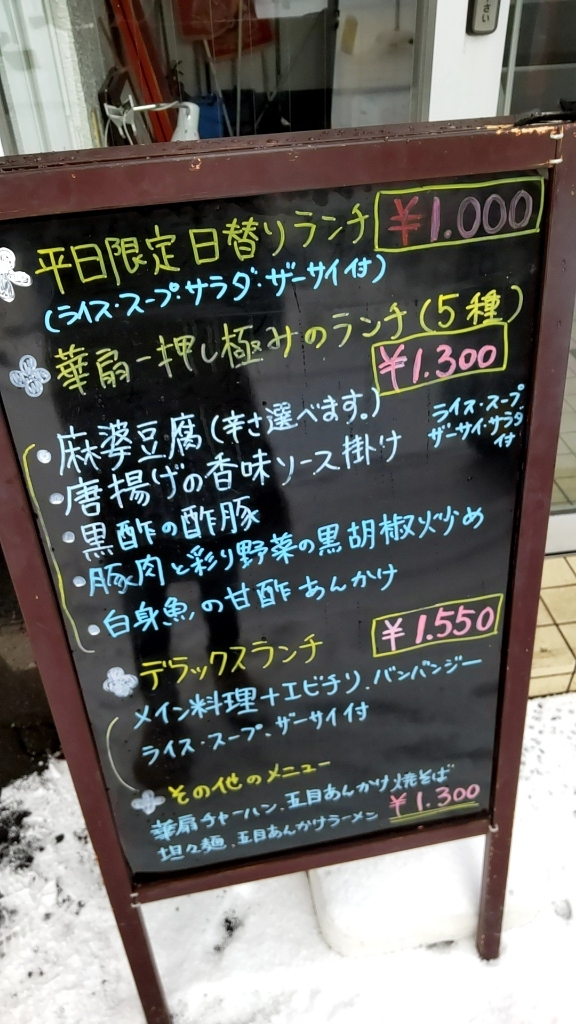 さい
平日限定 日替りランチ ¥1.000
(ライス・スープ・サラダ・ザーサイ付)
華扇一押し極みのランチ(5種)
¥1.300
・麻婆豆腐(辛さ選べます。)
ライス・スープ
ザーサイ・サラダ
付
・唐揚げの香味ソース掛け
・黒酢の酢豚
・豚肉と彩り野菜の黒胡椒炒め
・白身魚の甘酢あんかけ
デラックスランチ ¥1.550
メイン料理+エビチリ、バンバンジー
ライス・スープ、ザーサイ付
その他のメニュー
華扇チャーハン、五目あんかけ焼そば
坦々麺、五目あんかけラーメン ¥1.300